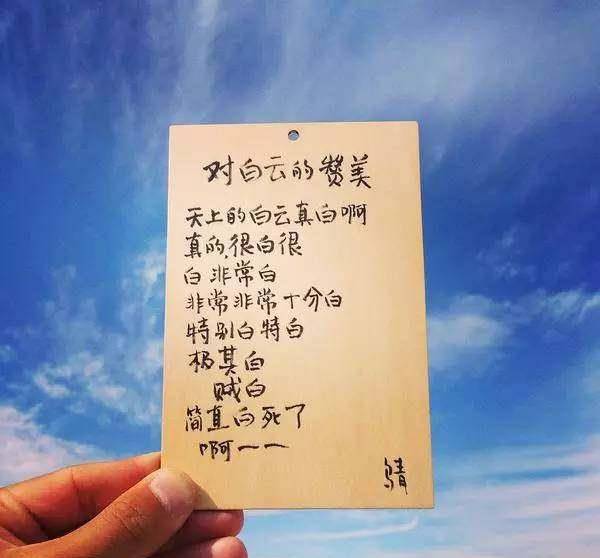 对白云的赞美
天上的白云真白啊
真的,很白很
白非常白
非常非常十分白
特别白特白
极其白
贼白
简直白死了
啊——
乌青